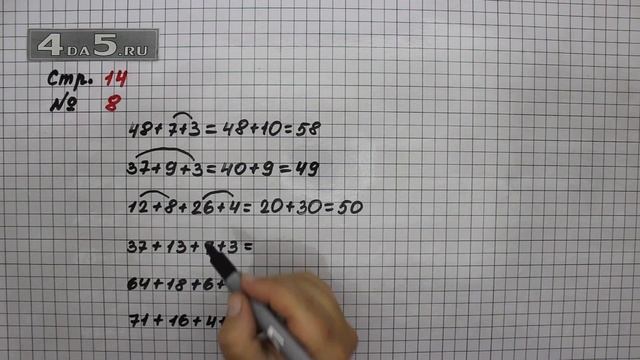 4DA5.RU
Стр. 14
№ 8
48+7+3=48+10=58
37+9+3=40+9=49
12+8+26+4=20+30=50
37+13+ +3=
64+18+6+
71+16+4+